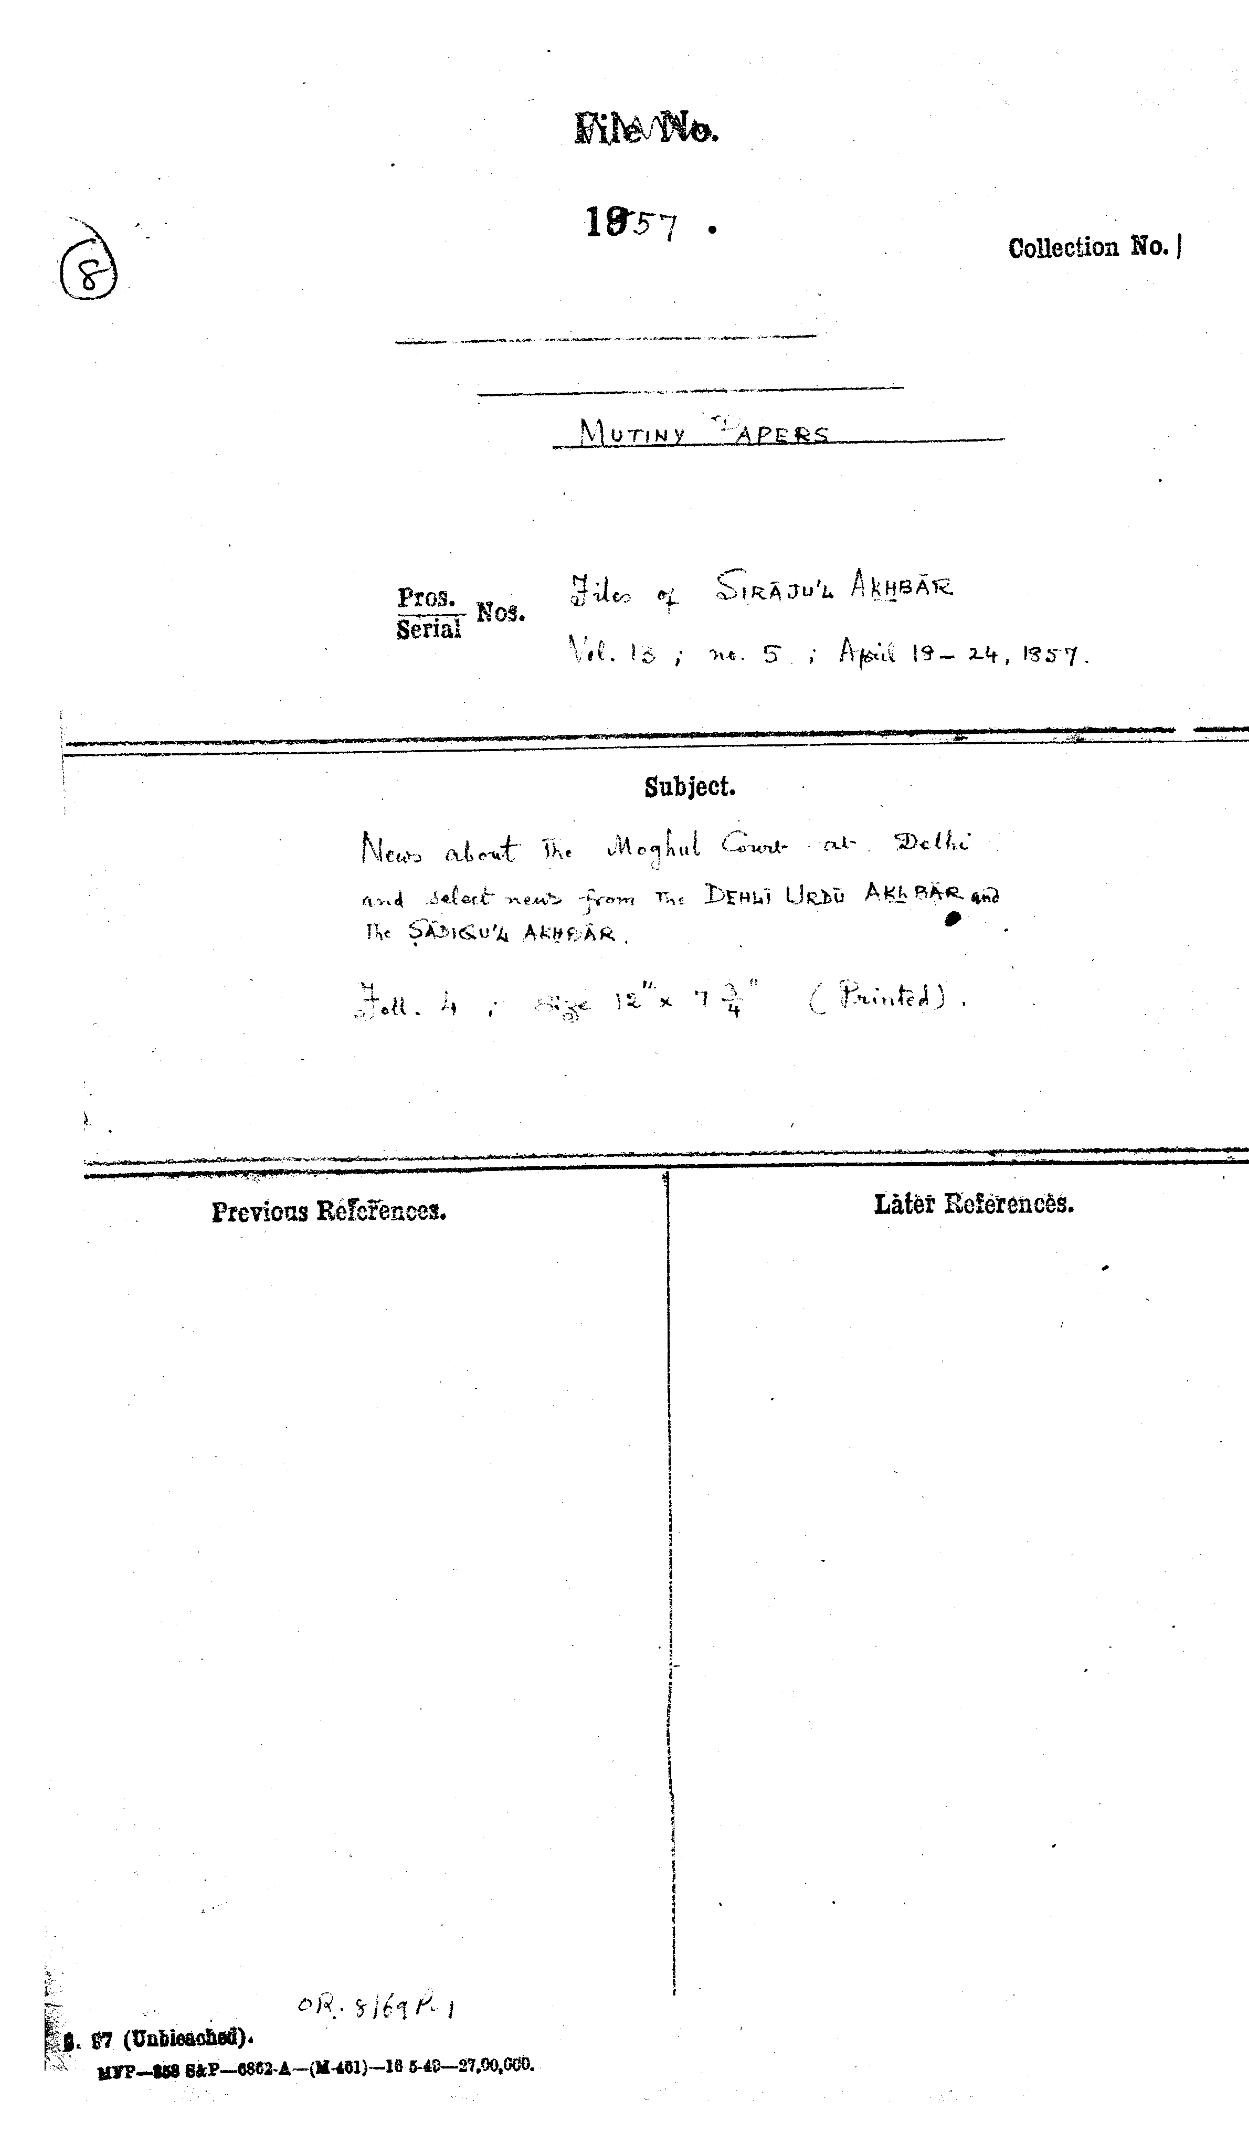 File No.
1857 .
Collection No. 1
8
MUTINY PAPERS
Pros.
Serial Nos.
Files of SIRĀJU'L AKHBĀR
Vol. 13 ; no. 5 ; April 19 – 24, 1857.
Subject.
News about the Moghul Court at Delhi
and select news from the DEHLĪ URDŪ AKHBĀR and
the ṢĀDIQU'L AKHBĀR.
Foll. 4 ; size 12" x 7 3/4" (Printed).
Previous References.
Later References.
OR. 8169 P. 1
S. 87 (Unbleached).
MFP—858 S&P—6862-A—(M-461)—16-5-49—27,00,000.